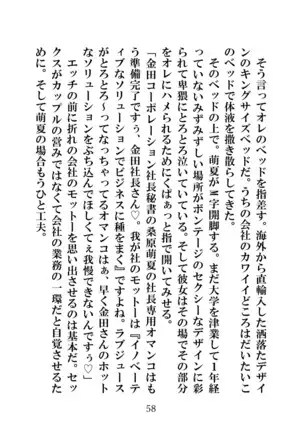 そう言ってオレのベッドを指差す。海外から直輸入した洒落たデザイ
ンのキングサイズベッドだ。うちの会社のカワイイどころはだいたいこ
のベッドで体液を撒き散らしてきた。
そのベッドの上で。萌夏がM字開脚する。まだ大学を津業して1年経
っていないみずみずしい場所がボンテージのセクシーなデザインに彩
られて卑猥にとろとろ泣いている。そして彼女はその場でその部分
をオレにハメられるためにくぱぁっと指で開いてみせる。
「金田コーポレーション社長秘書の桑原萌夏の社長専用オマンコはも
う準備完了ですぅ、金田社長さぁん♡。我が社のモットーは『イノベーテ
ィブなソリューションでビジネスに種をまく』ですよね。ラブジュース
がとろとろ～ってなっちゃってるオマンコはぁ、早く金田さんのホット
なソリューションをぶち込んでほしくてぇ我慢できないんですぅ♡」
エッチの前に折れの会社のモットーを思い出させるのは基本だ。セッ
クスがカップルの営みではなくて会社の業務の一環だと自覚させるた
めに。そして萌夏の場合もうひと工夫。
58